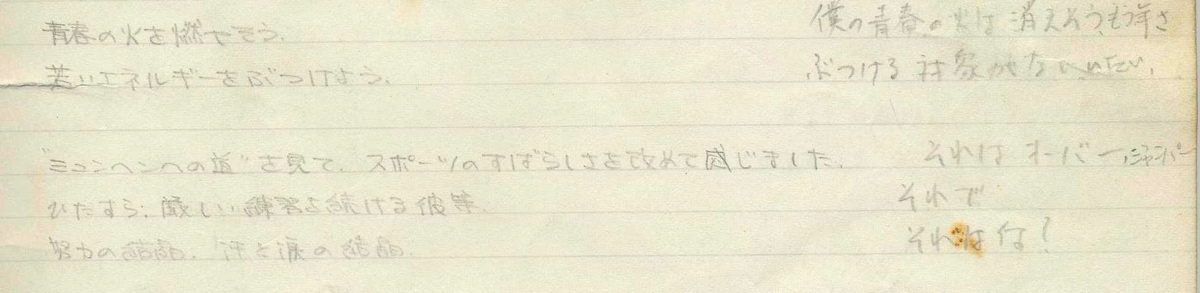 青春の火を燃やそう。
若いエネルギーをぶつけよう。
"ミュンヘンへの道"を見て、スポーツのすばらしさを改めて感じました。
ひたすら、厳しい練習を続ける彼等。
努力の結晶、汗と涙の結晶。
僕の青春の火は消えそう、もう年さ
ぶつける対象がない
それはオーバー、
それで
それはな?